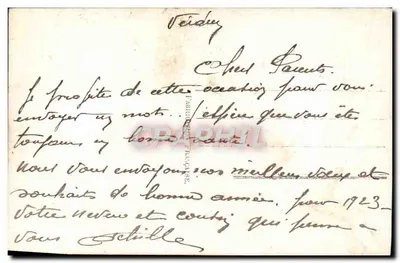 Verdun
Chers Parents.
Je profite de cette occasion pour vous
envoyer un mot... j'espère que vous êtes
toujours en bonne santé.
nous vous envoyons nos meilleurs vœux et
souhaits de bonne année. pour 1923-
votre neveu et cousin qui pense a
vous Achille
CARPRICA
FABRICATION FRANÇAISE